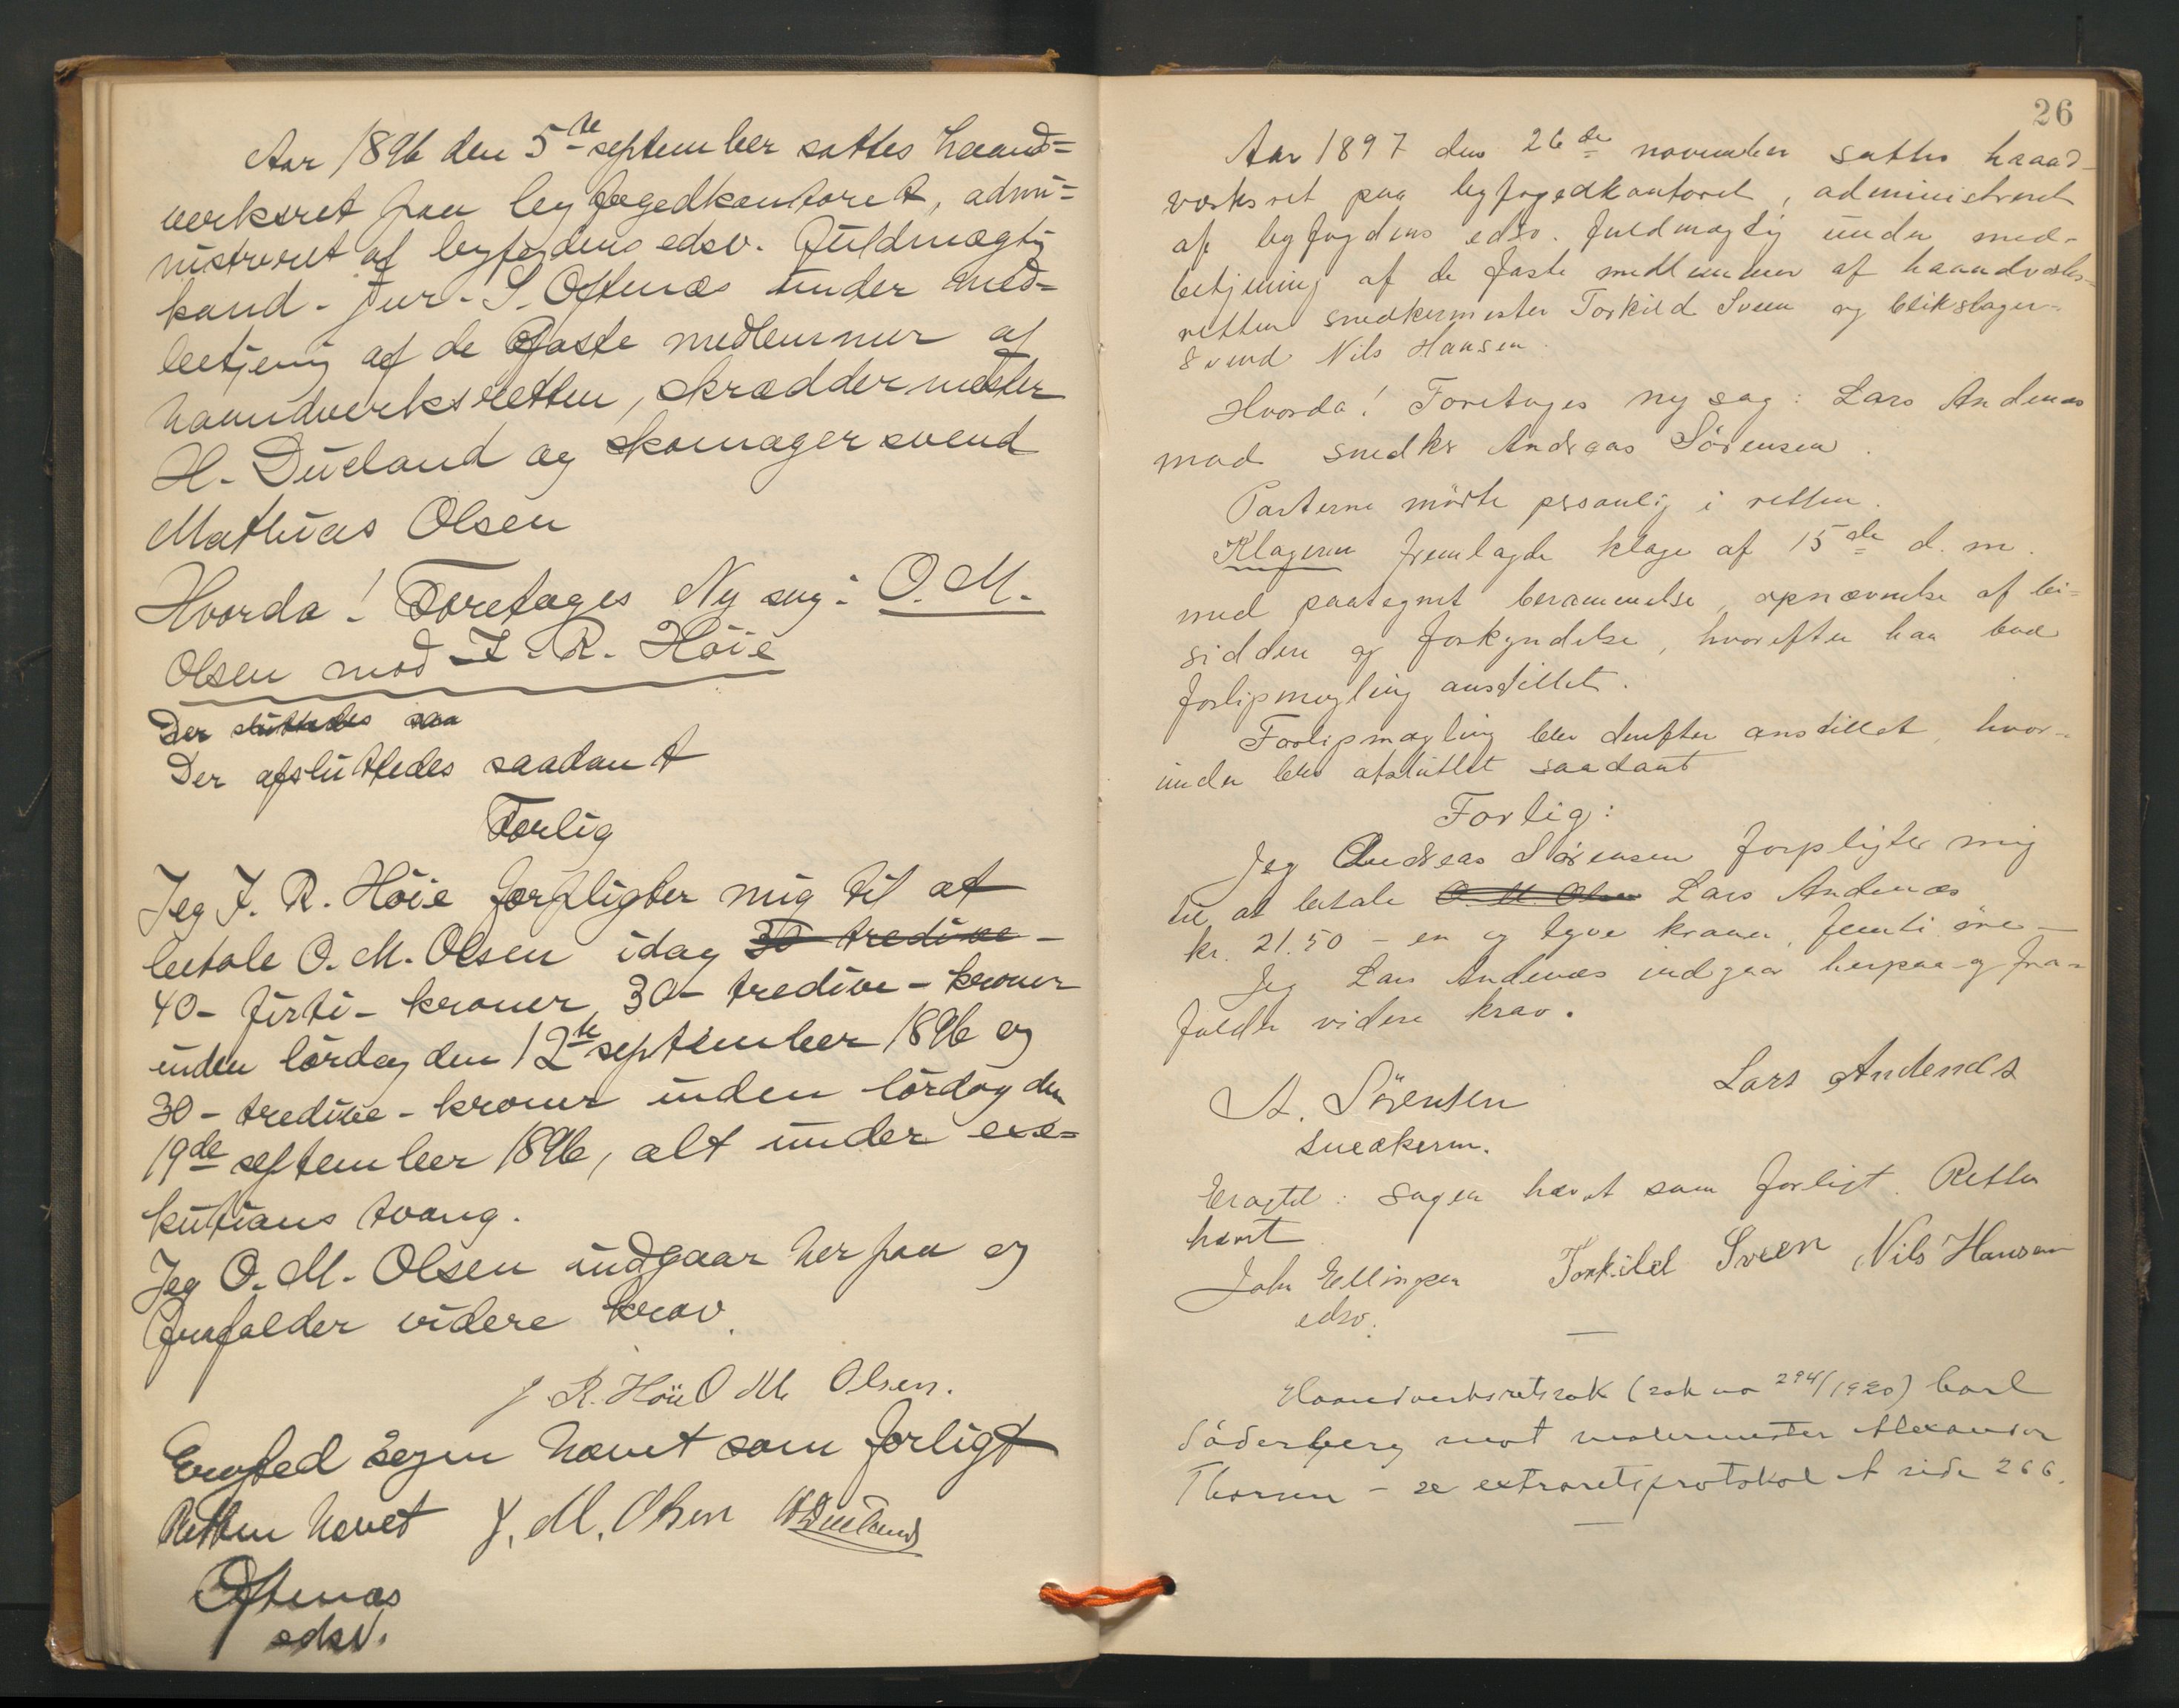 Aar 1896 den 5te september sattes haand=
verksret paa byfogedkontoret, admi=
nistreret af byfogdens edsv. Fuldmægtig
kand. jur. S. Oftenæs under med=
betjening af de faste medlemmer af
haandverksretten, skræddermester
H. Dueland og skomagersvend
Mathias Olsen
Hvorda! Foretages Ny sag: O. M.
Olsen mod J. R. Höie
Der sluttedes saa
Der afsluttedes saadant
Forlig
Jeg J. R. Höie forpligter mig til at
betale O. M. Olsen idag 30 tredive -
40 - firti - kroner, 30 - tredive - kroner
inden lördag den 12te september 1896 og
30 - tredive - kroner inden lördag den
19de september 1896, alt under exe=
kutions tvang.
Jeg O. M. Olsen indgaar herpaa og
frafalder videre krav.
J. R. Höie O M Olsen.
Eragted Sagen hævet som forligt
Retten hævet J. M. Olsen H Dueland
Oftenæs
edsv.
26
Aar 1897 den 26de november sattes haand-
verksret paa byfogedkontoret, administreret
af byfogdens edsv. fuldmægtig under med-
betjening af de faste medlemmer af haandverks-
retten snedkermester Torkild Sveen og blikslager-
svend Nils Hansen.
Hvorda! Foretages ny sag: Lars Andenæs
mod snedker Andreas Sörensen.
Parterne mödte personlig i retten.
Klageren fremlagde klage af 15de d. m.
med paategnet berammelse, opnævnelse af bi=
siddere og forkyndelse, hvorefter han bad
forligsmægling anstillet.
Forligsmægling blev derefter anstillet, hvor-
under blev afsluttet saadant
Forlig:
Jeg Andreas Sörensen forpligter mig
til at betale O. M. Olsen Lars Andenæs
kr. 21.50 - en og tyve kroner, femti öre -
Jeg Lars Andenæs indgaar herpaa og fra-
falder videre krav.
Lars Andenæs
A. Sörensen
snedkerm.
Eragtet: Sagen hævet som forligt. Retten
hævet
John Ellingsen Torkild Sveen Nils Hansen
edsv.
Haandverksretssak (sak no 294/1920) Carl
Söderberg mot malermester Alexander
Thorsen - se extraretsprotokol A side 266.